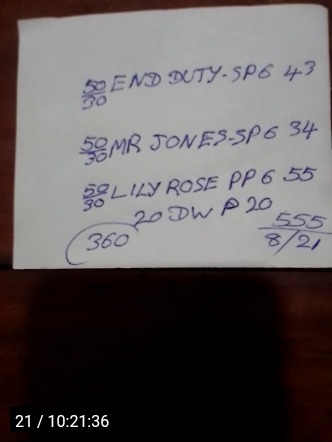 50/30 END DUTY-SP6 43
50/30 MR JONES-SP6 34
50/30 LILY ROSE PP6 55
20 DW P 20
360
555
8/21
21 / 10:21:36